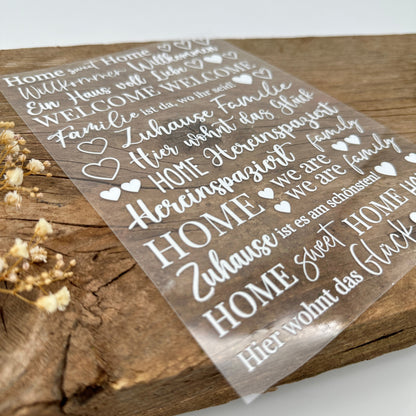 Home sweet Home
Willkommen Willkommen
Ein Haus voll Liebe
WELCOME WELCOME
Familie ist da, wo ihr seid!
Zuhause Familie
Hier wohnt das Glück
HOME Hereinspaziert
Hereinspaziert family
HOME we are family
we are
Zuhause ist es am schönsten!
HOME sweet HOME
Hier wohnt das Glück